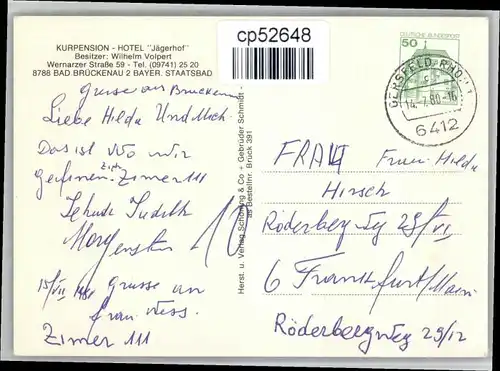 cp52648
KURPENSION - HOTEL "Jägerhof"
Besitzer: Wilhelm Volpert
Wernarzer Straße 59 - Tel. (09741) 25 20
8788 BAD BRÜCKENAU 2 BAYER. STAATSBAD
DEUTSCHE BUNDESPOST
50
GERSFELD, RHÖN 1
14.-7.80-16
6412
Grüsse aus Brückenau
Liebe Hilda Und Mich.
Das ist Wo wir
Zimer 111
Morgenstern
15/VII Grüsse an
Frau Hess.
Zimer 111
10
Herst. u. Verlag Schöning & Co + Gebrüder Schmidt -
Bestellnr. Brück 391
FRAU Frau Hilda
Hirsch
Röderbergweg 29/VII
6 Frankfurt/Main
Röderbergweg 29/12